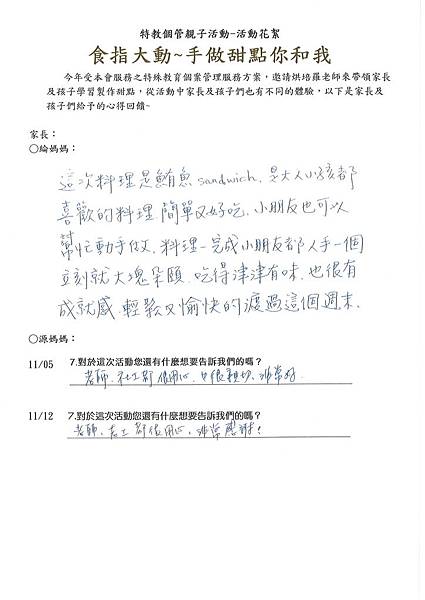 特教個管親子活動-活動花絮
食指大動~手做甜點你和我
今年受本會服務之特殊教育個案管理服務方案，邀請烘培羅老師來帶領家長
及孩子學習製作甜點，從活動中家長及孩子們也有不同的體驗，以下是家長及
孩子們給予的心得回饋~
家長：
○綸媽媽：
這次料理是鮪魚 sandwich，是大人小孩都
喜歡的料理 簡單又好吃，小朋友也可以
幫忙動手做，料理一完成小朋友都人手一個
立刻就大塊朵頤，吃得津津有味，也很有
成就感，輕鬆又愉快的渡過這個週末．
○源媽媽：
11/05 7.對於這次活動您還有什麼想要告訴我們的嗎？
老師、社工都很用心，也很親切、非常好．
11/12 7.對於這次活動您還有什麼想要告訴我們的嗎？
老師、志工都很用心，非常感謝！